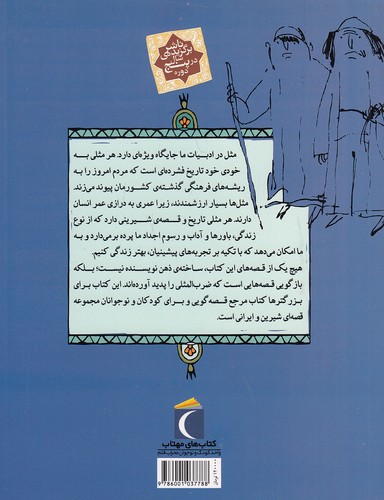 ناشر
برگزیده‌ی
سال
در پنج
دوره
مثل در ادبیات ما جایگاه ویژه‌ای دارد. هر مثلی به
خودی خود تاریخ فشرده‌ای است که مردم امروز را به
ریشه‌های فرهنگی گذشته‌ی کشورمان پیوند می‌زند.
مثل‌ها بسیار ارزشمندند، زیرا عمری به درازی عمر انسان
دارند. هر مثلی تاریخ و قصه‌ی شیرینی دارد که از نوع
زندگی، باورها و آداب و رسوم اجداد ما پرده برمی‌دارد و به
ما امکان می‌دهد که با تکیه بر تجربه‌های پیشینیان، بهتر زندگی کنیم.
هیچ یک از قصه‌های این کتاب، ساخته‌ی ذهن نویسنده نیست؛ بلکه
بازگویی قصه‌هایی است که ضرب‌المثلی را پدید آورده‌اند. این کتاب برای
بزرگترها کتاب مرجع قصه‌گویی و برای کودکان و نوجوانان مجموعه
قصه‌ای شیرین و ایرانی است.
کتاب‌های مهتاب
واحد کودک و نوجوان محراب قلم
9 786001 037788